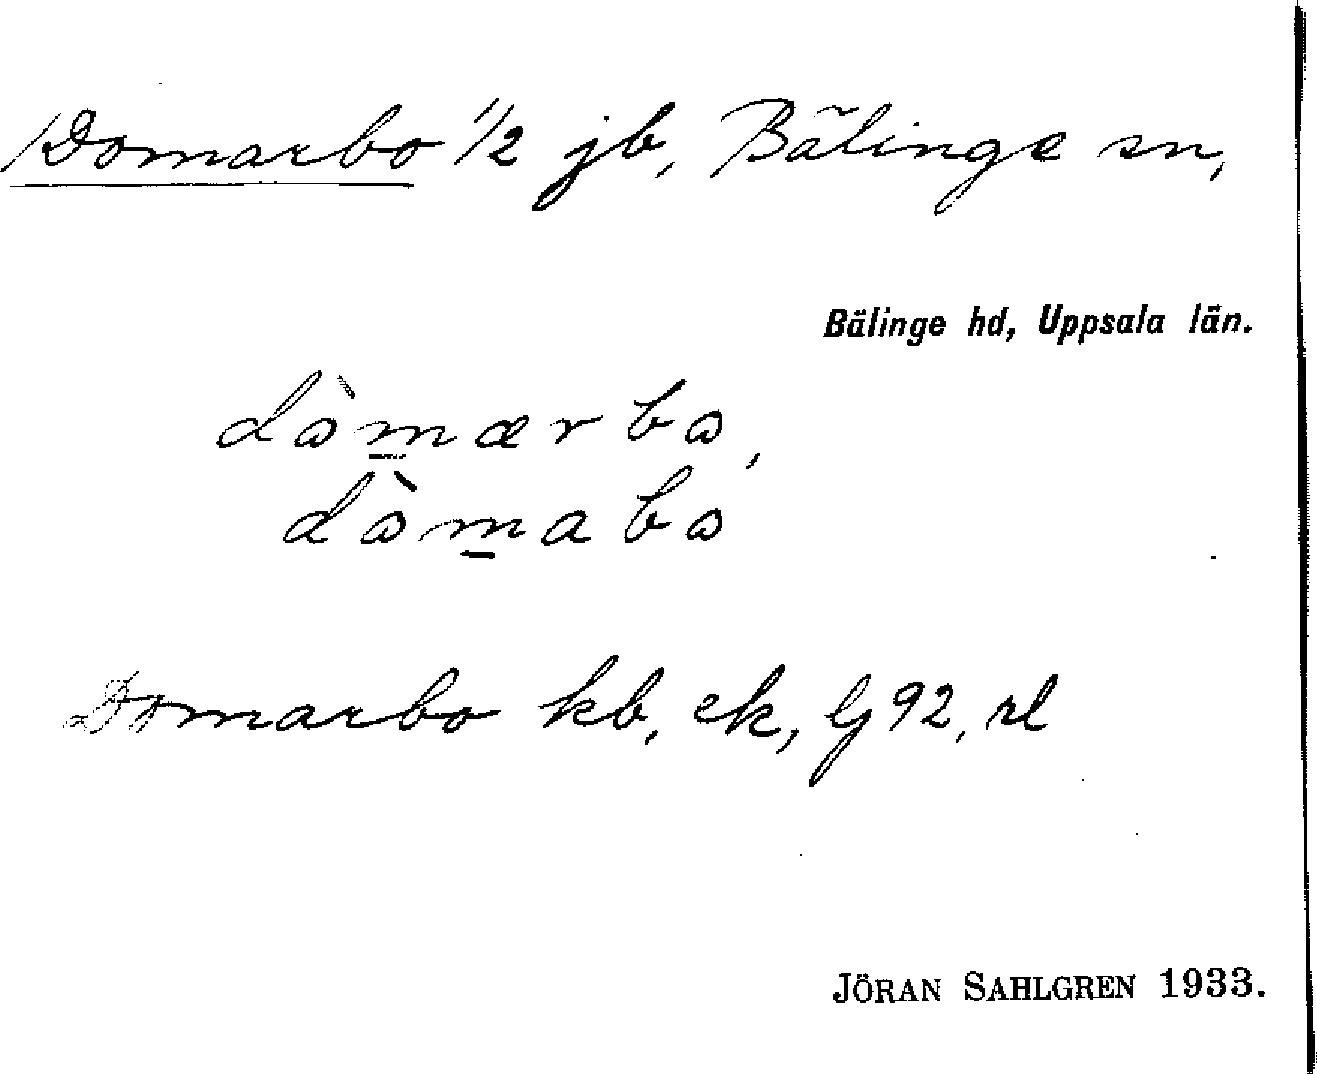 Domarbo 1/2 jb, Bälinge sn,
Bälinge hd, Uppsala län.
dɷ̀m̲ærbɷ,
dɷ̀m̲abɷ
Domarbo kb, ek, lj 92, rl
JÖRAN SAHLGREN 1933.